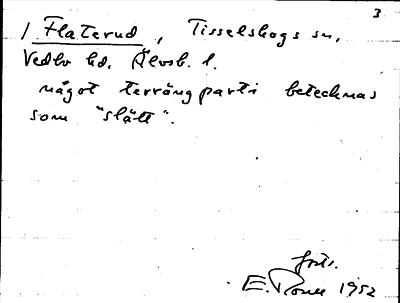 3
1 Flaterud, Tisselskogs sn,
Vedbo hd. Älvsb. l.
något terrängparti betecknas
som "slätt".
forts.
E. 1952